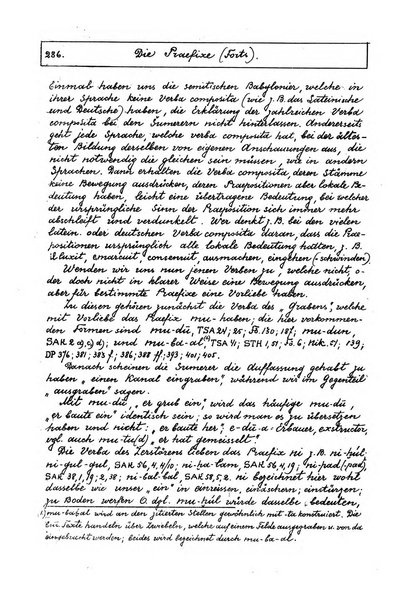 286. Die Praefixe (Forts.).
Einmal haben uns die semitischen Babylonier, welche in
ihrer Sprache keine Verba composita (wie z.B. das Lateinische
und Deutsche) haben, die Erklärung der zahlreichen Verba
composita bei den Sumerern nicht hinterlassen. Andererseits
geht jede Sprache, welche verba composita hat, bei der ältes-
ten Bildung derselben von eigenen Anschauungen aus, die
nicht notwendig die gleichen sein müssen, wie in andern
Sprachen. Dann erhalten die Verba composita, deren Stämme
keine Bewegung ausdrücken, deren Praepositionen aber lokale Be-
deutung haben, leicht eine übertragene Bedeutung, bei welcher
der ursprüngliche Sinn der Praeposition sich immer mehr
abschleift und verdunkelt. Wer denkt z.B. bei den vielen
latein. oder deutschen Verba composita daran, dass die Prae-
positionen ursprünglich alle lokale Bedeutung hatten, z.B.
eluxit, emarcuit, consenuit, ausmachen, eingehen (= schwinden).
Wenden wir uns nun jenen Verben zu, welche nicht, o-
der doch nicht in klarer Weise eine Bewegung ausdrücken,
aber für bestimmte Praefixe eine Vorliebe haben.
Zu diesen gehören zunächst die Verba des "Grabens", welche
mit Vorliebe das Praefix mu- haben; die hier vorkommen-
den Formen sind mu-dū, TSA 24; 25; Fö. 130; 187; mu-dun,
SAK 2 und mu-ba-al, TSA 11; STH 1, 51; Fö. 6; Nik. 51; 139;
DP 376; 381; 383 f; 386; 388 ff; 393; 401; 405.
Danach scheinen die Sumerer die Auffassung gehabt zu
haben "einen Kanal eingraben", während wir im Gegenteil
"ausgraben" sagen.
Mit mu-dū, "er grub ein", wird das häufige mu-dū,
"er baute ein" identisch sein; so wird man es zu übersetzen
haben und nicht: "er baute her"; e-dū-a = Erbauer, exstructor,
vgl. auch mu-tu(d) "er hat gemeisselt".
Die Verba des Zerstörens lieben das Praefix ni z.B. ni-ḫul;
ni-gul-gul, SAK 56,4,4/10; ni-ḫa-lam, SAK 56,4,19; ni-pad(-pad),
SAK 38,1,19; 2,38; ni-bal-bal, SAK 58,5,2. ni bezeichnet hier wohl
dasselbe wie unser "ein" in einreissen, einäschern; einstürzen;
zu Boden werfen o. dgl. mu-ḫul würde dasselbe bedeuten,
1) mu-ba-al wird an den zitierten Stellen gewöhnlich mit -ta konstruiert. Die
bez. Texte handeln über Zwiebeln, welche auf einem Felde ausgegraben u. von da
eingebracht werden; dies wird bezeichnet durch mu-ba-al.